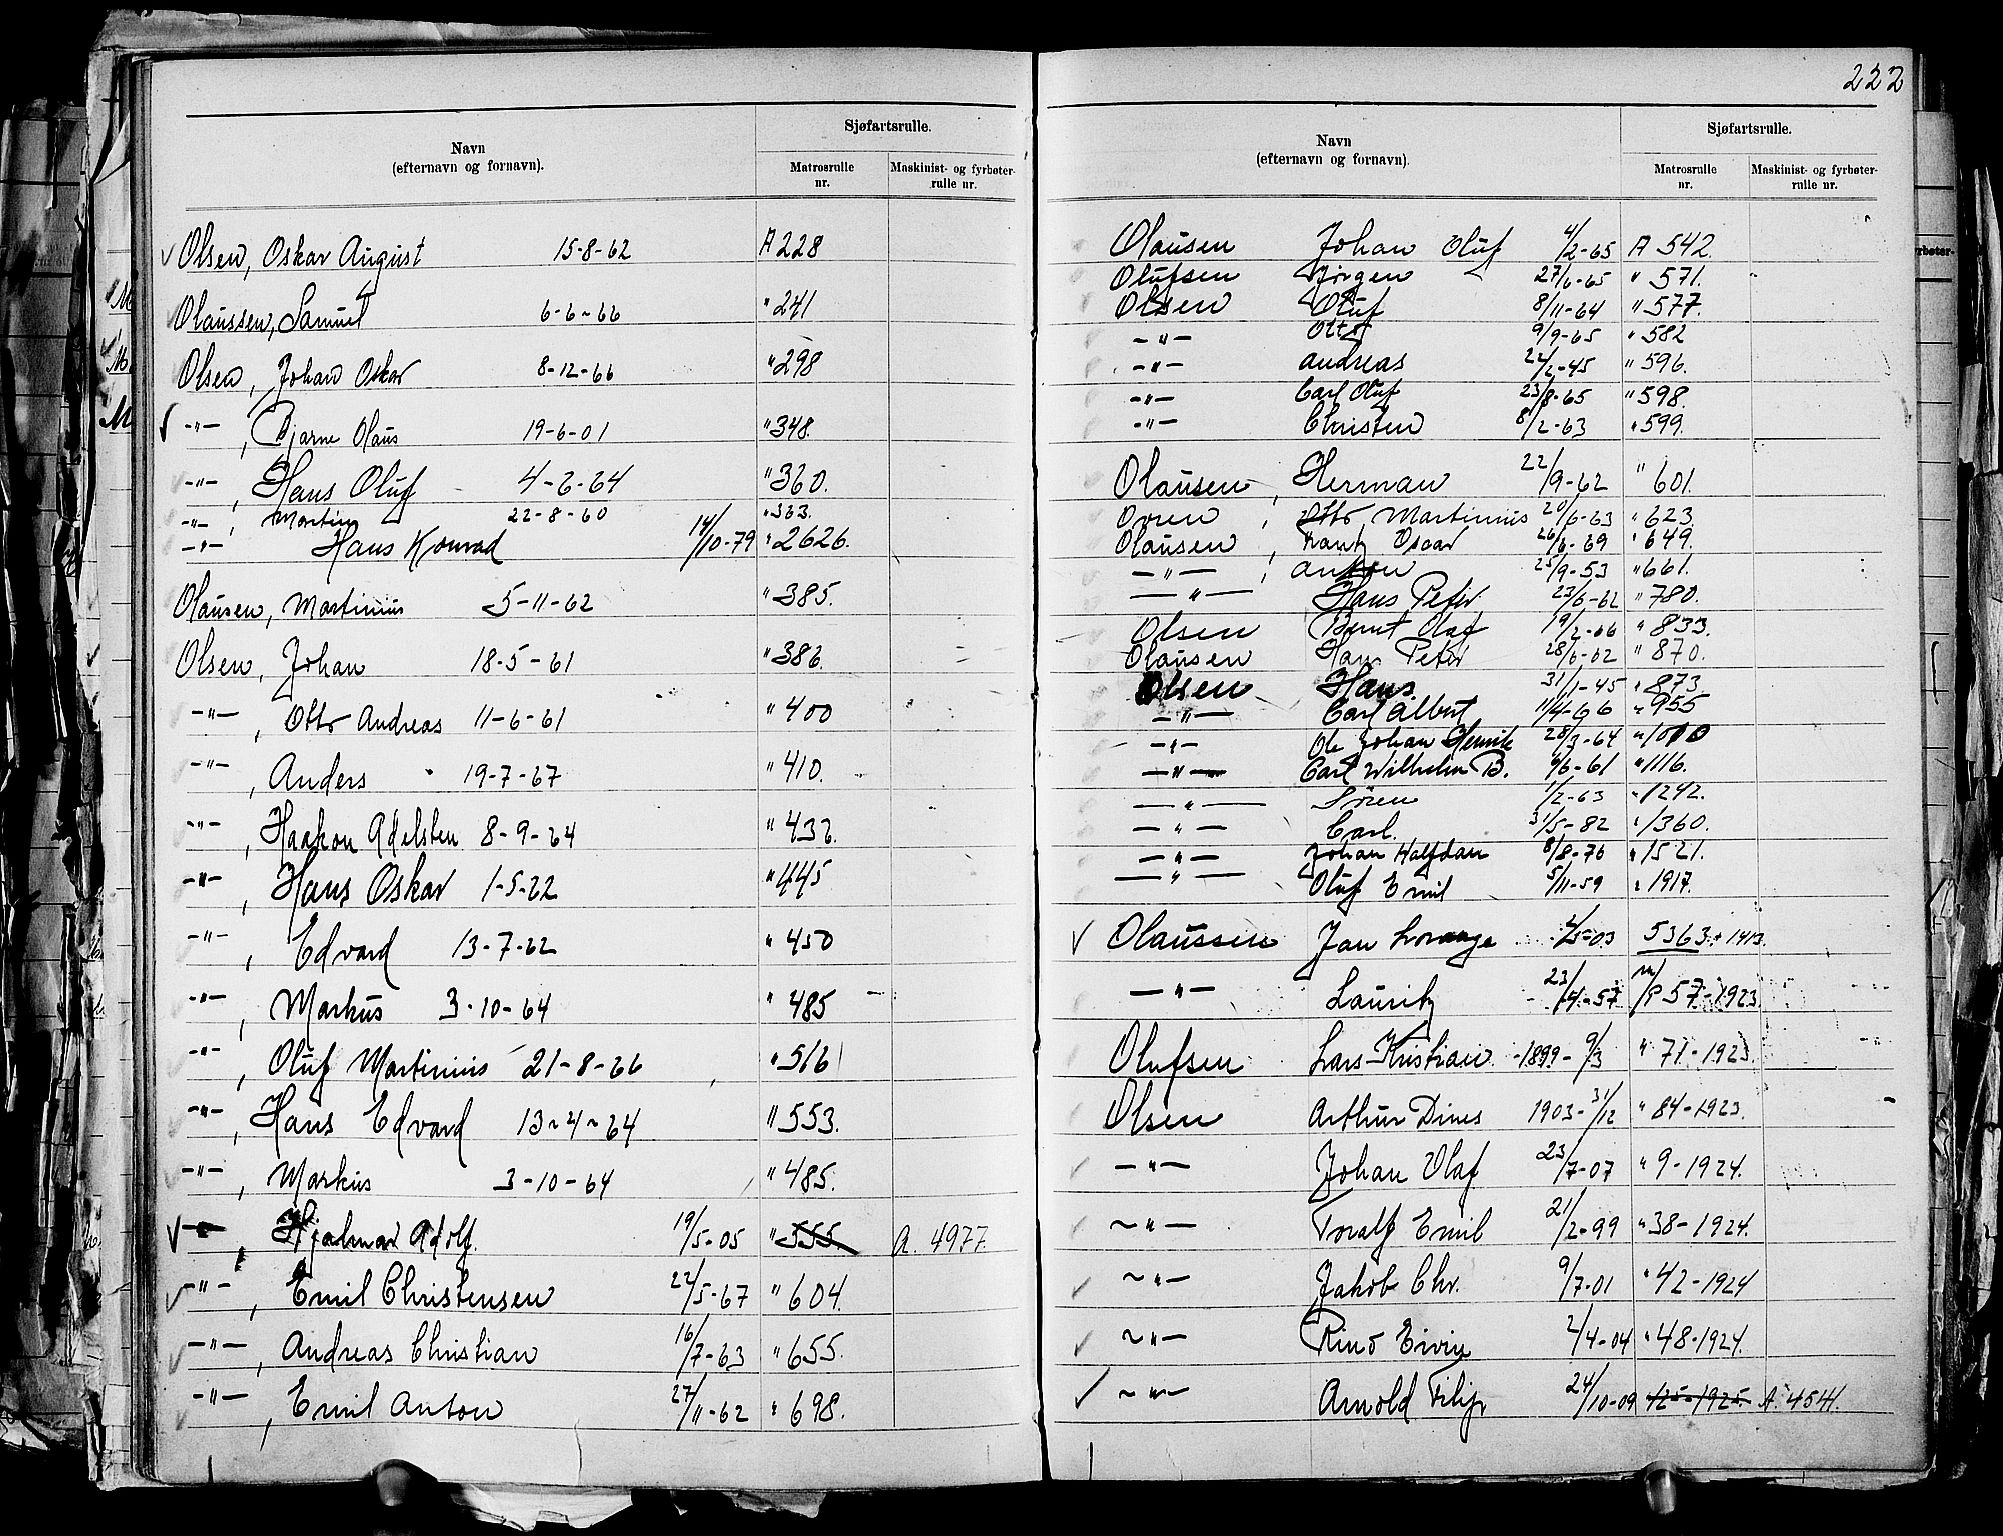 222
Navn
(efternavn og fornavn).
Sjøfartsrulle.
Matrosrulle
nr.
Maskinist- og fyrbøter-
rulle nr.
Olsen, Oskar August 15-8-62 A 228
Olaussen, Samuel 6-6-66 " 241
Olsen, Johan Oskar 8-12-66 " 298
-"-, Bjarne Olaus 19-6-01 " 348.
-"-, Hans Oluf 4-6-64 " 360.
-"-, Martin 22-8-60 " 363.
-"- Hans Konrad 14/10-79 " 2626.
Olausen, Martinius 5-11-62 " 385.
Olsen, Johan 18-5-61 " 386.
-"-, Otto Andreas 11-6-61 " 400
-"-, Anders 19-7-67 " 410.
-"-, Haakon Adelsten 8-9-64 " 436.
-"-, Hans Oskar 1-5-62 " 445
-"-, Edvard 13-7-62 " 450
-"-, Markus 3-10-64 " 485
-"-, Oluf Martinius 21-8-66 " 516
-"-, Hans Edvard 13-4-64 " 553.
-"-, Markus 3-10-64 " 485.
-"-, Hjalmar Adolf. 19/5-05 " 555. A. 4977.
-"-, Emil Christensen 22/5-67 " 604.
-"-, Andreas Christian 16/7-63 " 655.
-"-, Emil Anton 27/11-62 " 698.
Navn
(efternavn og fornavn).
Sjøfartsrulle.
Matrosrulle
nr.
Maskinist- og fyrbøter-
rulle nr.
Olausen Johan Oluf 4/2-65 A 542.
Olufsen Jörgen 27/6-65 " 571.
Olsen Oluf 8/11-64 " 577.
-"- Otto 9/9-65 " 582
-"- Andreas 22/2-45 " 596.
-"- Carl Oluf 23/8-65 " 598.
-"- Christen 8/2-63 " 599.
Olausen, Herman 22/9-62 " 601.
, Otto Martinius 20/6-63 " 623.
Olausen, Oscar 26/6-69 " 649.
-"-, Anton 25/9-53 " 661.
-"- Hans Peter 23/6-62 " 780.
Olsen Bernt Olaf 19/2-66 " 833.
Olausen Hans Peter 28/6-62 " 870.
Olsen Hans 31/1-45 " 873
-"- Carl Albert 11/4-66 " 955
-"- Ole Johan Henrik 28/3-64 " 1000
-"- Carl Wilhelm B. 6/6-61 " 1116.
-"- Sören 1/2-63 " 1242.
-"- Carl. 31/5-82 " 1360.
-"- Johan Halfdan 8/8-76 " 1521.
-"- Oluf Emil 5/11-59 " 1917.
Olaussen Jan 2/5-03 5363. 1913.
-"- Lauritz 23/4-57 57-1923
Olufsen Lars Kristian. -1899- 9/3 " 71-1923.
Olsen Arthur Dines 1903-31/12 " 84-1923.
-"- Johan Olaf 23/7-07 " 9-1924.
-"- Toralf Emil 21/2-99 " 38-1924.
-"- Jakob Chr. 9/7-01 " 42-1924
-"- Eivin 2/4-04 " 48-1924.
-"- Arnold Filip 24/10-09 125-1925. A. 4541.